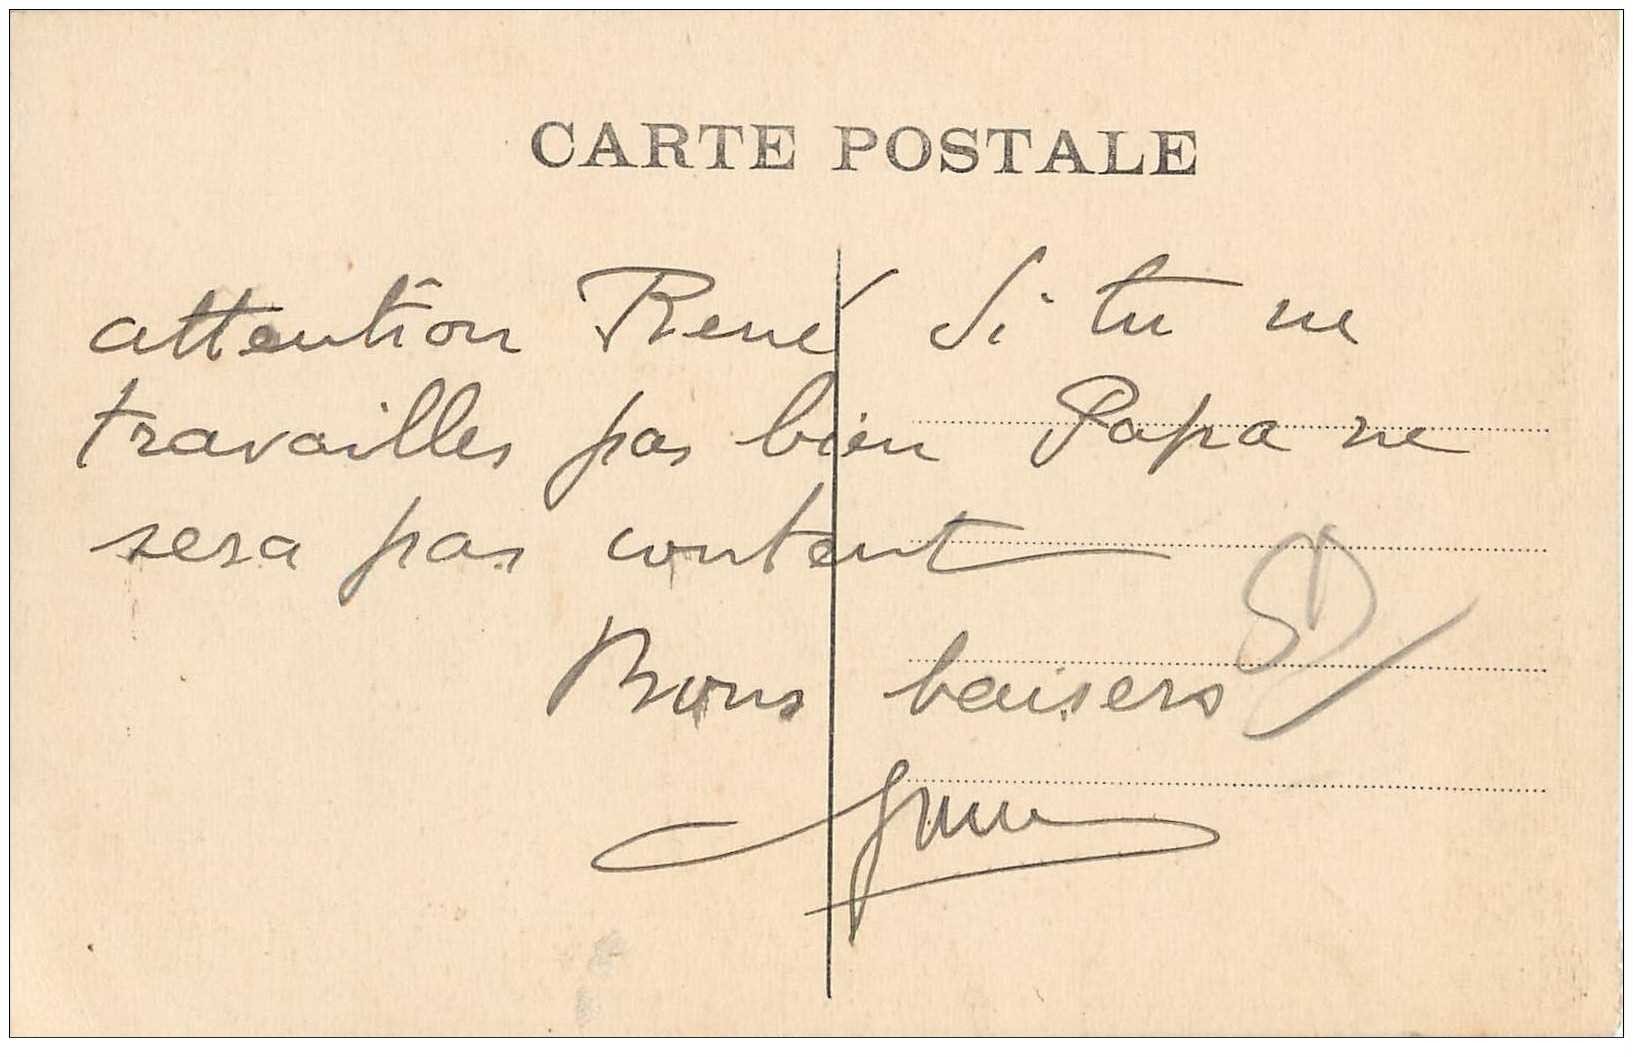 CARTE POSTALE
attention René si tu ne
travailles pas bien Papa ne
sera pas content
Bons baisers